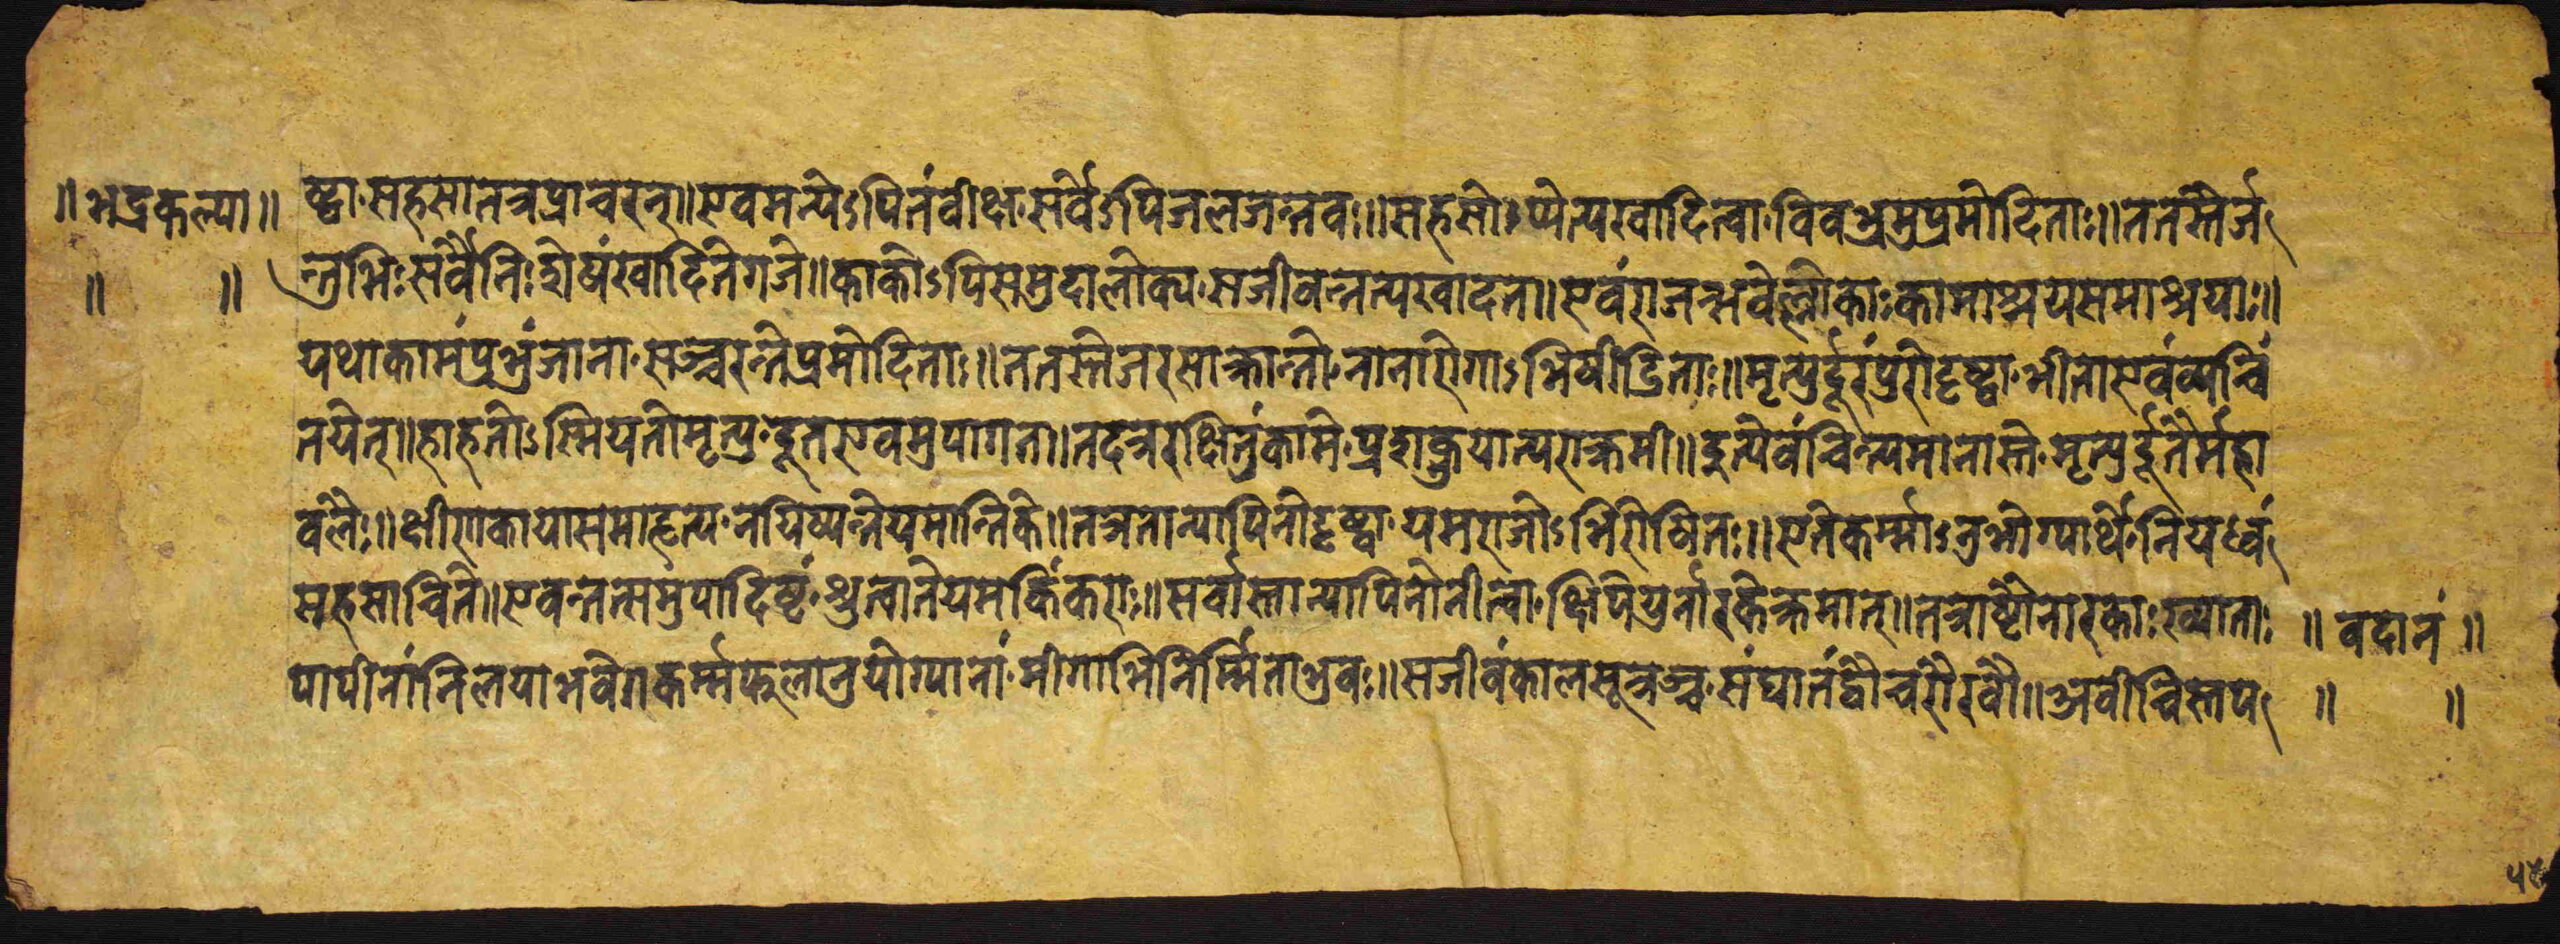 ॥ भद्रकल्पा ॥ ष्ट्वा सहसा तत्र प्राचरन् ॥ एवमन्येऽपि तं वीक्ष्य सर्वेऽपि जलजन्तवः ॥ सहसोऽप्येत्य खादित्वा विवभ्रमु प्रमोदिताः ॥ ततस्तैर्ज
न्तुभिः सर्वैर्निःशेषं खादिते गजे ॥ काकोऽपि समुदालोक्य सजीवन्तत्यखादत ॥ एवं राजन्भवेल्लोकाः कामाश्रयसमाश्रयाः ॥
यथाकामं प्रभुंजाना सञ्चरन्ते प्रमोदिताः ॥ ततस्ते जरसाक्रान्ता नानारोगाऽभिपीडिताः ॥ मृत्युर्दूरं पुरो दृष्ट्वा भीता एवं व्यचिं
तयेत् ॥ हा हतोऽस्मि यतो मृत्यु दूत एवमुपागत ॥ तदत्र रक्षितुं कामे प्रशक्नुयात्पराक्रमी ॥ इत्येवं चिन्त्यमानास्ते मृत्युर्दूतैर्महा
वलैः ॥ क्षीणकाया समाहृत्य नयिष्यन्ते यमान्तिके ॥ तत्र तान्पापिनो दृष्ट्वा यमराजोऽभिरोषितः ॥ एते कर्म्माऽनुभोग्यार्थे नियध्वं
सहसा चिते ॥ एवन्तत्समुपादिष्टं श्रुत्वा ते यमकिंकराः ॥ सर्वास्तान्पापिनो नीत्वा क्षिपेयुर्नारके क्रमात् ॥ तत्राष्टौ नारकाः ख्याताः ॥ वदानं ॥
पापीनां निलया भवेत् कर्म्मफलानुयोग्यानां भोगाभिनिर्म्मिता भुवः ॥ सजीवं कालसूत्रञ्च संघातं द्वौ च रौरवौ ॥ अवीचिस्तप ॥ ॥